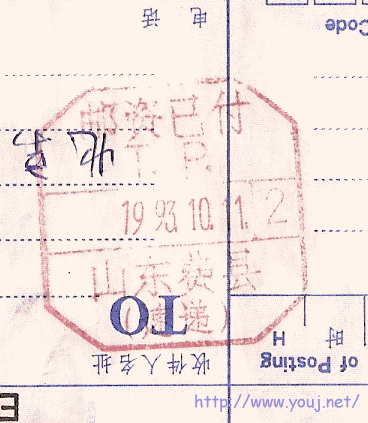 电 话
Code
邮资已付
T. P.
19 93. 10. 11. 2
山东费县
(速递)
TO
收件人名址
时
H
of Posting
http://www.youj.net/